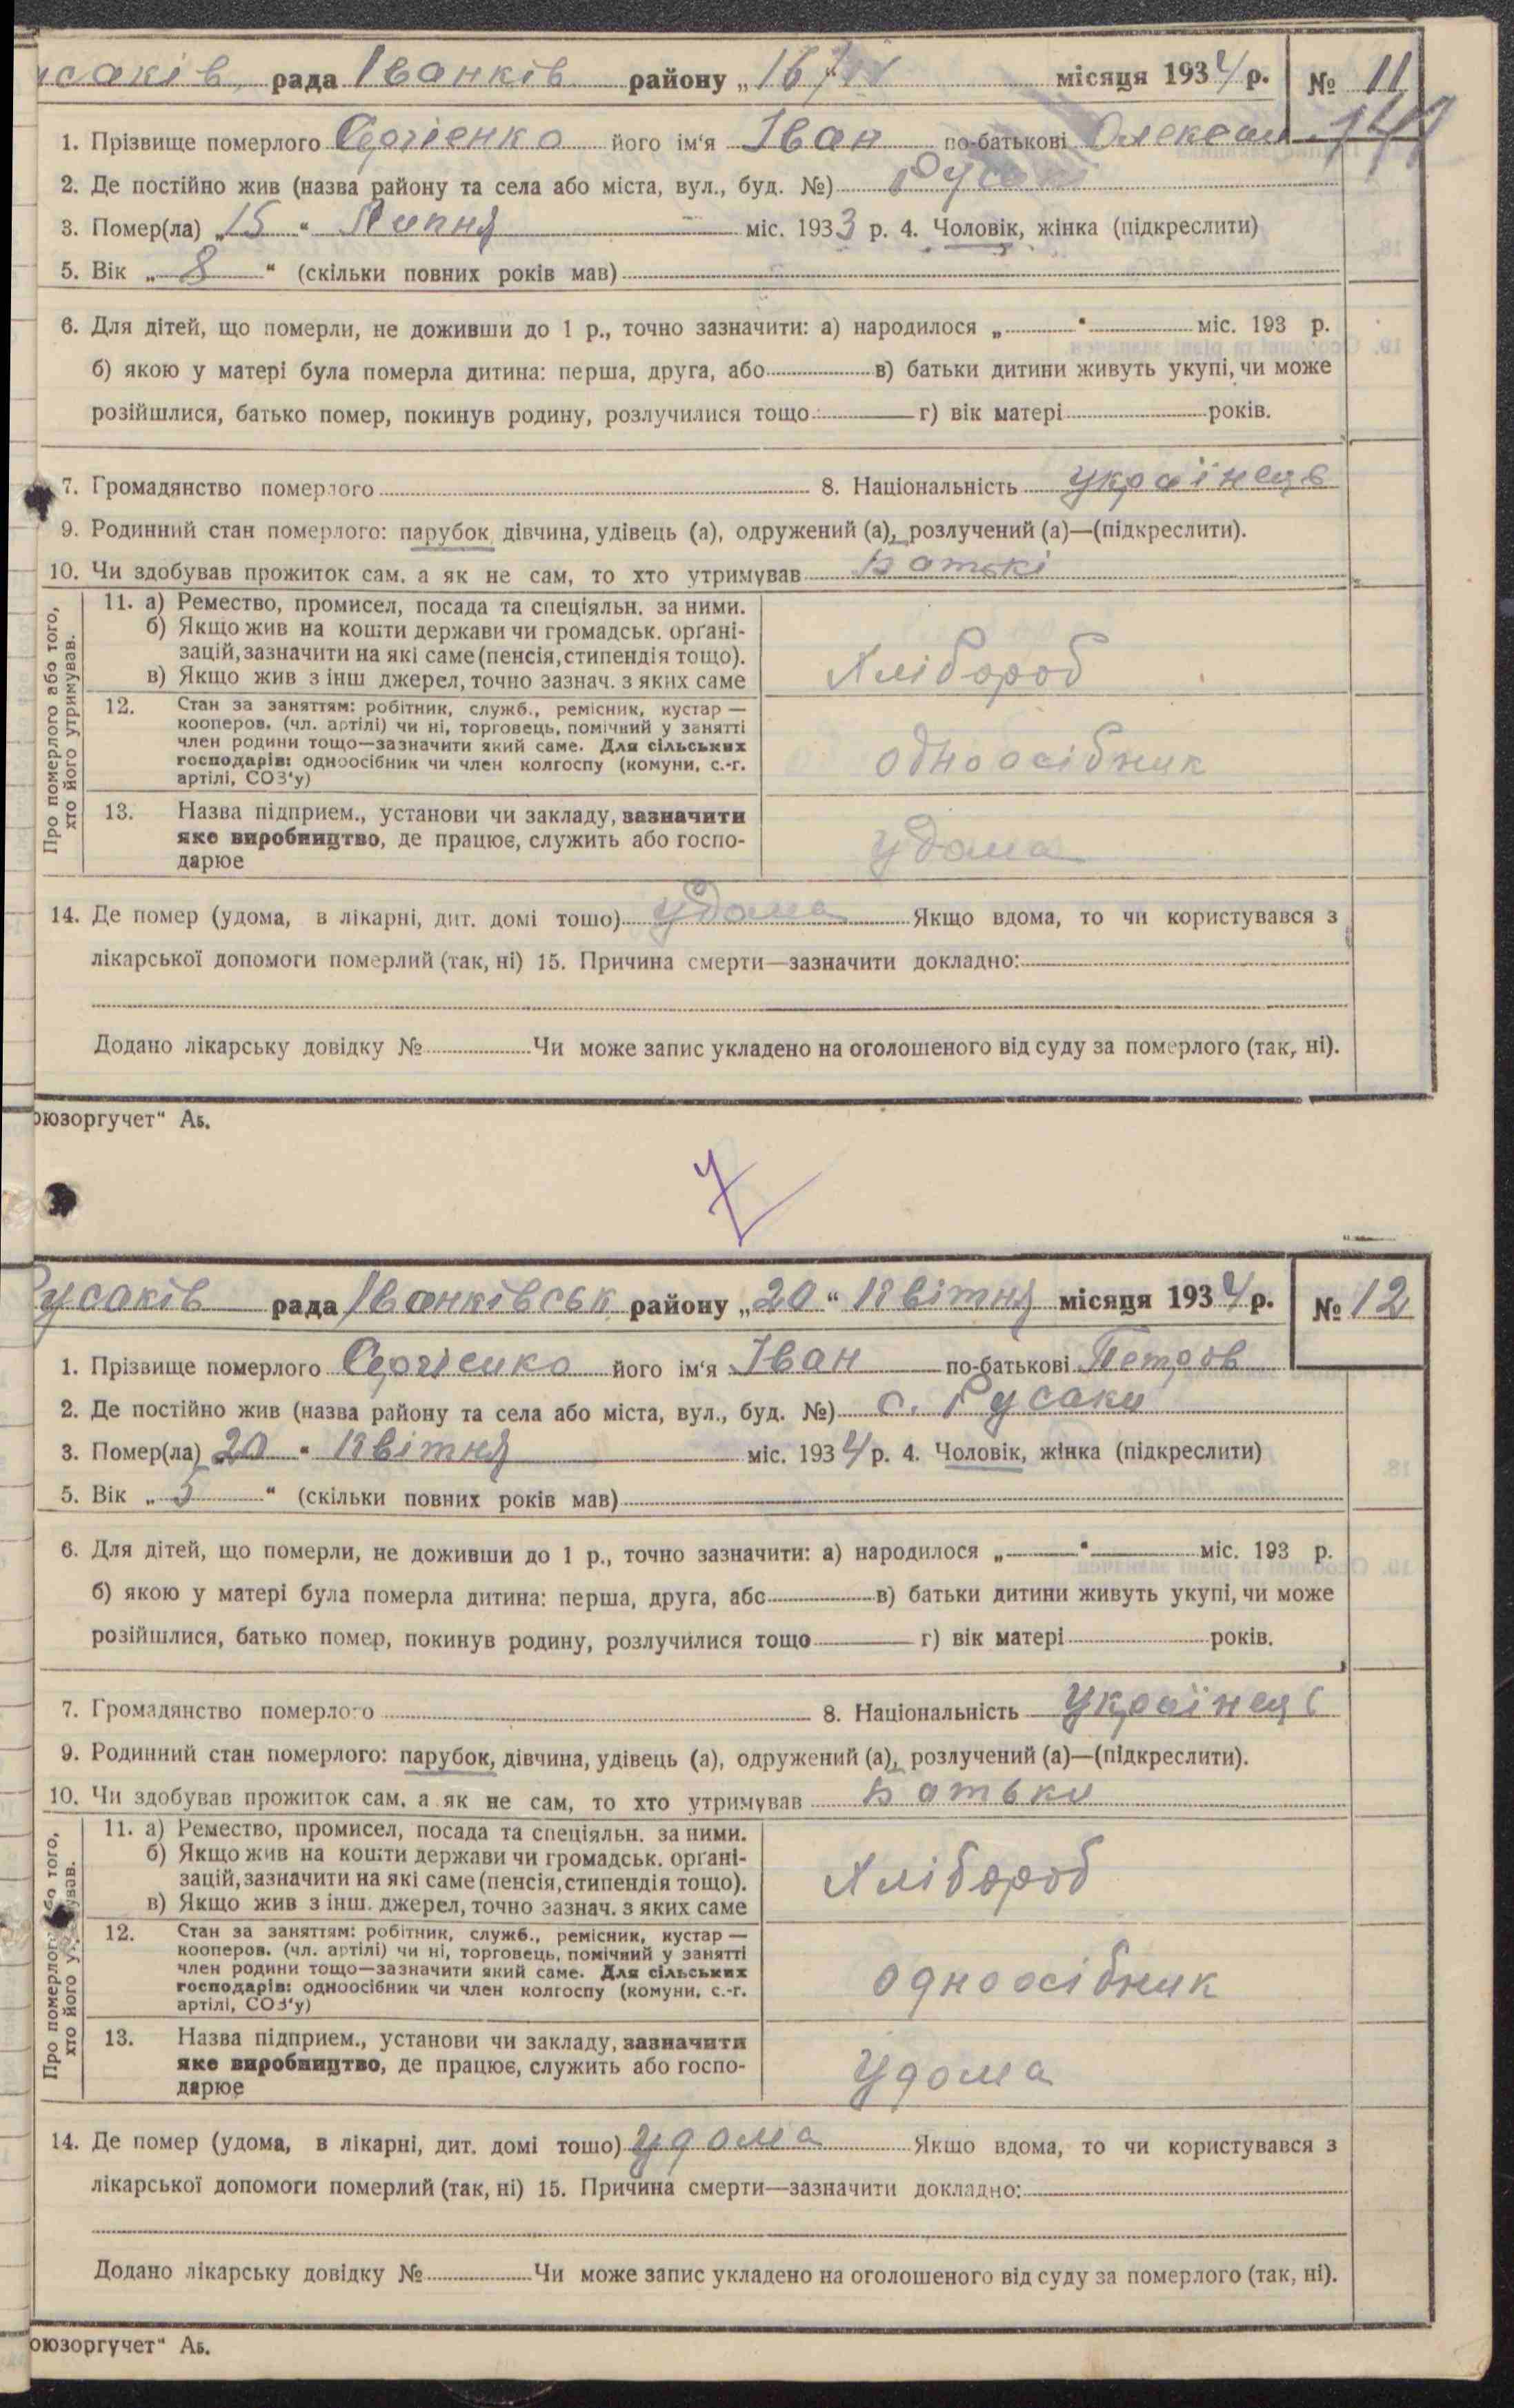 усаків рада Іванків району „16/IV місяця 1934 р. № 11
1. Прізвище померлого Сергієнко його ім‘я Іван по-батькові Олексан
2. Де постійно жив (назва району та села або міста, вул., буд. №)
3. Помер(ла) „15 “ Липня міс. 1933 р. 4. Чоловік, жінка (підкреслити)
5. Вік „ 8 “ (скільки повних років мав)
6. Для дітей, що померли, не доживши до 1 р., точно зазначити: а) народилося „ “ міс. 193 р.
б) якою у матері була померла дитина: перша, друга, або в) батьки дитини живуть укупі, чи може
розійшлися, батько помер, покинув родину, розлучилися тощо г) вік матері років.
7. Громадянство померлого 8. Національність українець
9. Родинний стан померлого: парубок, дівчина, удівець (а), одружений (а), розлучений (а)—(підкреслити).
10. Чи здобував прожиток сам, а як не сам, то хто утримував Батькі
Про померлого або того, хто його утримував.
11. а) Ремество, промисел, посада та спеціяльн. за ними.
б) Якщо жив на кошти держави чи громадськ. орґані-
зацій, зазначити на які саме (пенсія, стипендія тощо).
в) Якщо жив з інш джерел, точно зазнач. з яких саме
Хлібороб
12. Стан за заняттям: робітник, служб., ремісник, кустар —
кооперов. (чл. артілі) чи ні, торговець, помічний у занятті
член родини тощо—зазначити який саме. Для сільських
господарів: одноосібник чи член колгоспу (комуни, с.-г.
артілі, СОЗ‘у)
одноосібник
13. Назва підприєм., установи чи закладу, зазначити
яке виробництво, де працює, служить або госпо-
дарює
удома
14. Де помер (удома, в лікарні, дит. домі тощо) удома Якщо вдома, то чи користувався з
лікарської допомоги померлий (так, ні) 15. Причина смерти—зазначити докладно:
Додано лікарську довідку № Чи може запис укладено на оголошеного від суду за померлого (так, ні).
оюзоргучет“ Аб.
Русаків рада Іванківськ району „20“ Квітня місяця 1934 р. № 12
1. Прізвище померлого Сергієнко його ім‘я Іван по-батькові Петров
2. Де постійно жив (назва району та села або міста, вул., буд. №) с. Русаки
3. Помер(ла) 20 “ Квітня міс. 1934 р. 4. Чоловік, жінка (підкреслити)
5. Вік „ 5 “ (скільки повних років мав)
6. Для дітей, що померли, не доживши до 1 р., точно зазначити: а) народилося „ “ міс. 193 р.
б) якою у матері була померла дитина: перша, друга, або в) батьки дитини живуть укупі, чи може
розійшлися, батько помер, покинув родину, розлучилися тощо г) вік матері років.
7. Громадянство померлого 8. Національність Українець
9. Родинний стан померлого: парубок, дівчина, удівець (а), одружений (а), розлучений (а)—(підкреслити).
10. Чи здобував прожиток сам, а як не сам, то хто утримував Батьки
Про померлого або того, хто його утримував.
11. а) Ремество, промисел, посада та спеціяльн. за ними.
б) Якщо жив на кошти держави чи громадськ. орґані-
зацій, зазначити на які саме (пенсія, стипендія тощо).
в) Якщо жив з інш. джерел, точно зазнач. з яких саме
Хлібороб
12. Стан за заняттям: робітник, служб., ремісник, кустар —
кооперов. (чл. артілі) чи ні, торговець, помічний у занятті
член родини тощо—зазначити який саме. Для сільських
господарів: одноосібник чи член колгоспу (комуни, с.-г.
артілі, СОЗ‘у)
одноосібник
13. Назва підприєм., установи чи закладу, зазначити
яке виробництво, де працює, служить або госпо-
дарює
Удома
14. Де помер (удома, в лікарні, дит. домі тощо) удома Якщо вдома, то чи користувався з
лікарської допомоги померлий (так, ні) 15. Причина смерти—зазначити докладно:
Додано лікарську довідку № Чи може запис укладено на оголошеного від суду за померлого (так, ні).
оюзоргучет“ Аб.